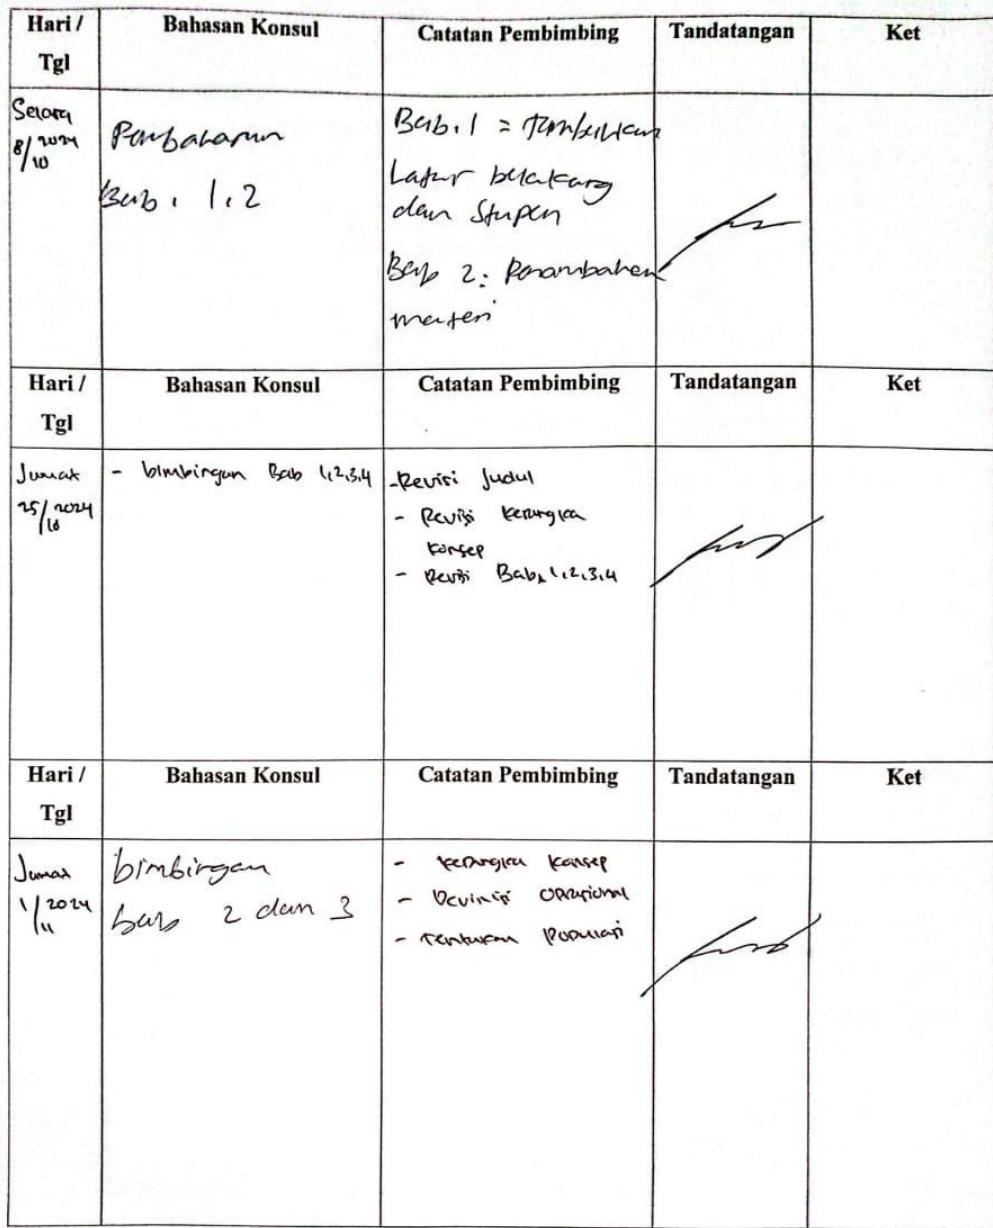 Hari / Bahasan Konsul Catatan Pembimbing Tandatangan Ket
Tgl
Selasa
8/10 2024
Pembahasan
Bab. 1.2
Bab. 1 = Tambahkan
Latar belakang
dan Stupen
Bab 2: Penambahan
materi
Hari / Bahasan Konsul Catatan Pembimbing Tandatangan Ket
Tgl
Jumat
25/10 2024
- bimbingan Bab 1,2,3,4
- Revisi Judul
- Revisi kerangka
konsep
- Revisi Bab 1,2,3,4
Hari / Bahasan Konsul Catatan Pembimbing Tandatangan Ket
Tgl
Jumat
1/11 2024
bimbingan
bab 2 dan 3
- kerangka konsep
- Devinisi Oprasional
- Tentukan Populasi